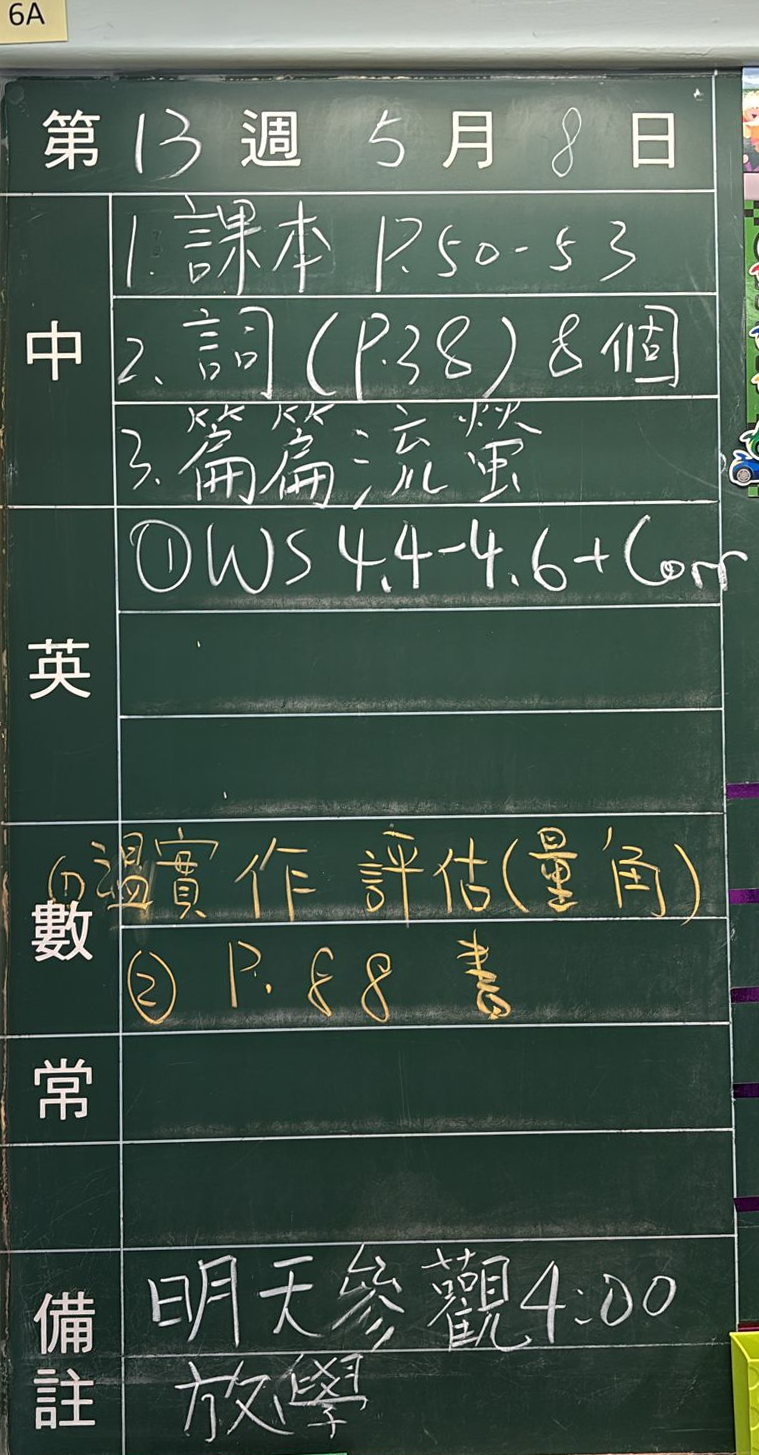 6A
第 13 週 5 月 8 日
中
1. 課本 P.50-53
2. 詞 (P.38) 8個
3. 篇篇流螢
英
① WS 4.4-4.6 + Corr
數
(1) 溫實作評估(量角)
② P.88 書
常
備註
明天參觀4:00
放學